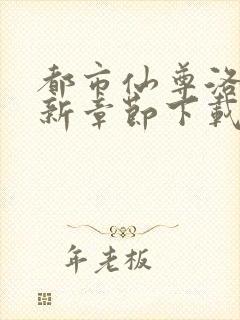 都市仙尊洛
新章节下载
年老板